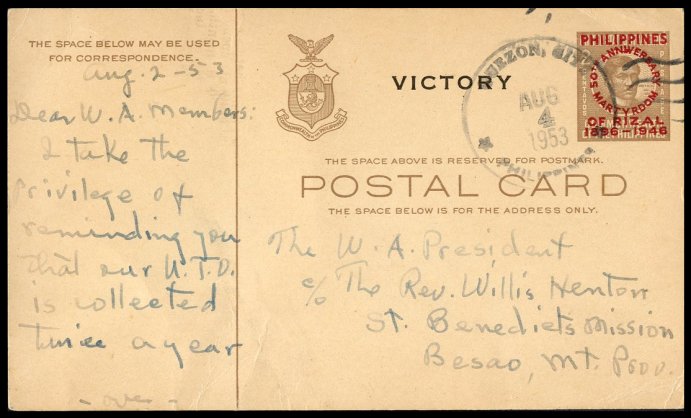 THE SPACE BELOW MAY BE USED
FOR CORRESPONDENCE.
Aug. 2 - 53
Dear W. A. Members:
I take the
privilege of
reminding you
that our U.T.O.
is collected
twice a year
- over -
VICTORY
QUEZON CITY
AUG
4
1953
PHILIPPINES
PHILIPPINES
50TH ANNIVERSARY
MARTYRDOM
OF RIZAL
1896-1946
COMMONWEALTH OF THE PHILIPPINES
THE SPACE ABOVE IS RESERVED FOR POSTMARK.
POSTAL CARD
THE SPACE BELOW IS FOR THE ADDRESS ONLY.
The W. A. President
c/o The Rev. Willis Henton
St. Benedicts Mission
Besao, Mt. Prov.